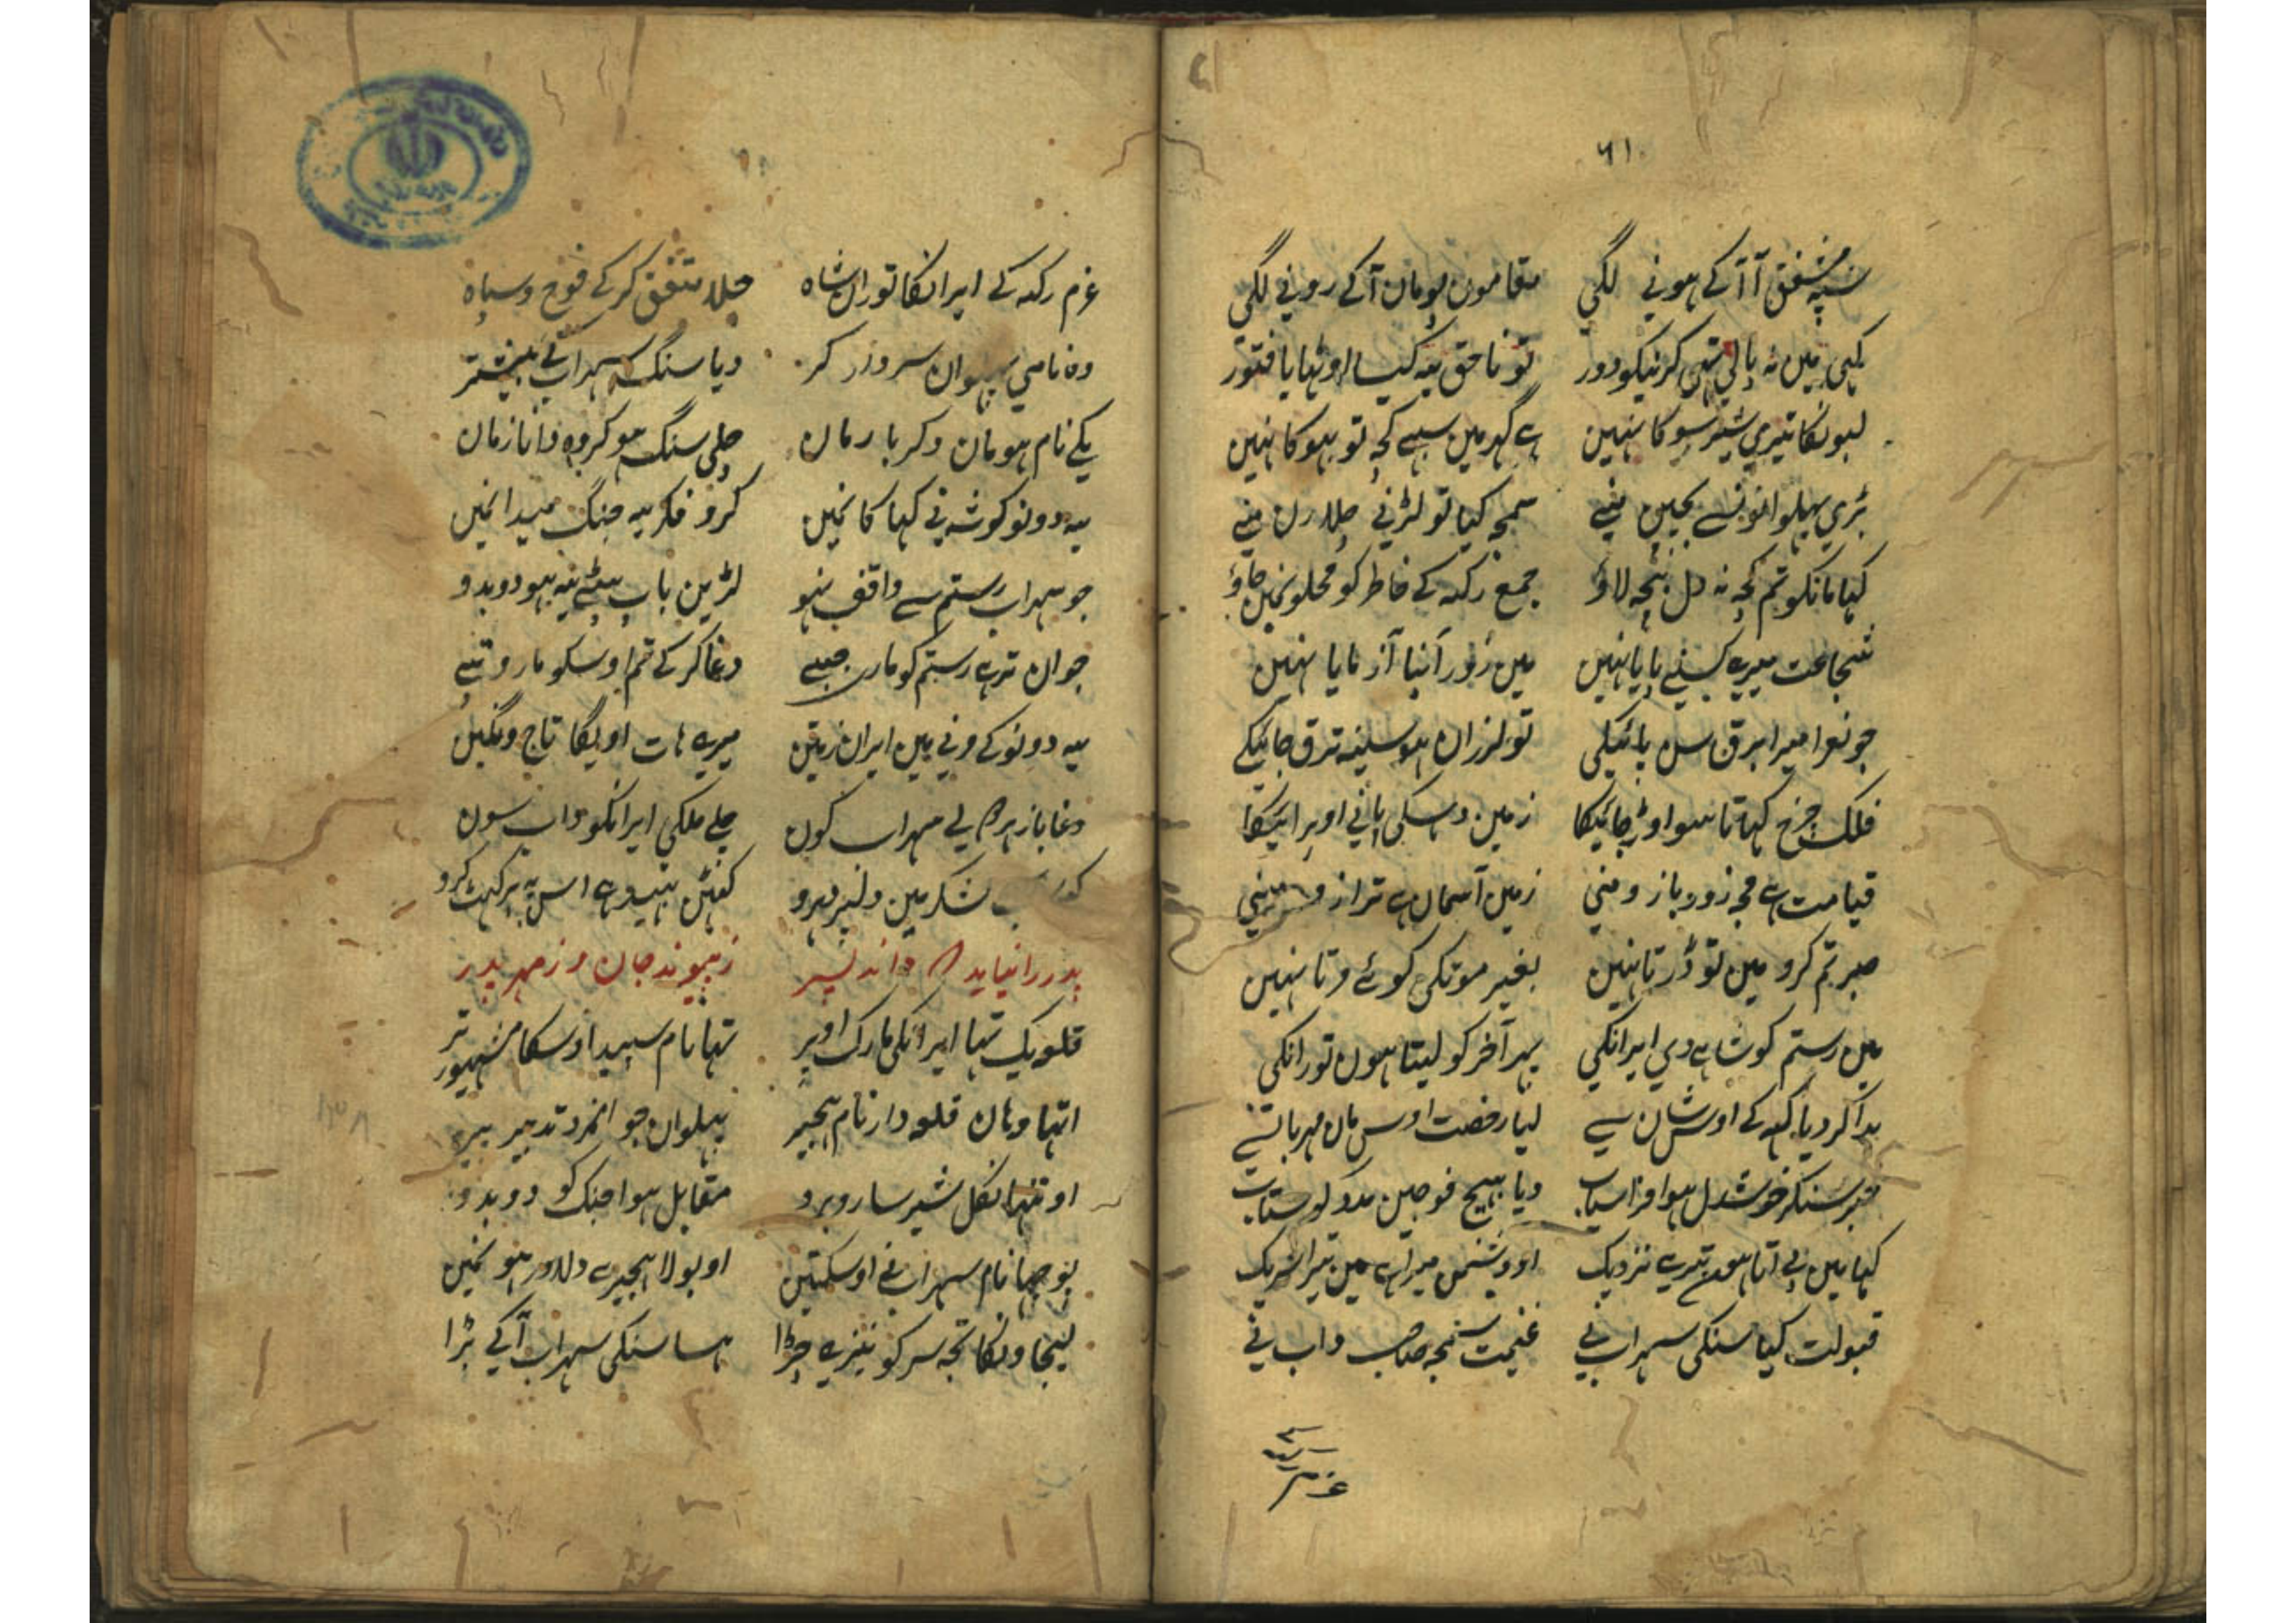 ۶۱
سپہ متفق آ آ کے ہونے لگی مقامون بومان آکے رونے لگی
کہی مین نہ پالی تہی کرنیکو دور تو ناحق یہ کیسا اوٹہایا فتور
لبونکا تیری شیر سوکا نہین ہے گہر مین سبے کچہ تو بہوکا نہین
بڑی پہلوانونسے بچپن منے سمجہ کیا تو لڑنے چلا رن منے
کہا مانکو تم کچہ نہ دل بیچہ لاؤ جمع رکہ کے خاطر کو محلونمین جاؤ
شجاعت میرے کسنے پایا نہین مین زور اپنا آزمایا نہین
جو نعرا میرا برق سن پائیکی تو لرزان ہو سینہ ترق جائیکے
فلک چرخ کہاتا سو اوڑ جائیکا زمین دہسکی پانی اوپر ائیکا
قیامت ہے مجہ زور بازو منی زمین آسمان ہے ترازو منی
صبر تم کرو مین تو ڈرتا نہین بغیر موتکی کوئے مرتا نہین
مین رستم کو شاہے دی ایرانکی پہر آخر کو لیتا ہون تورانکی
بدا کر دیا کہہ کے اوس شان سے لیا رخصت اوس مان مہربانسے
خبر سنکر خوشدل ہوا افراسیاب دیا بہیج فوجین مدد کو شتاب
کہا مین بے آتا ہون تیرے نزدیک او دشمن میرا ہے مین تیرا شریک
قبولت کیا سنکی سہراب نے غنیمت سمجہ صاحب داب نے
عزم
عزم رکہ کے ایرانکا توران شاہ چلا متفق کر کے فوج و سپاہ
وہ نامی پہلوان سروزر کر دیا سنگ سہراب کے بیشتر
یکے نام ہومان دگر بارمان چلی سنگ ہو کر وہ دانا زمان
یہ دونو کو شہ نے کہا کانمین کرو فکر یہ جنگ میدانمین
جو سہراب رستم سے واقف نہو لڑین باپ بیٹے یہ ہو دو بدو
جوان ترہے رستم کو مارے جبے دغا کر کے تم اوسکو مارو تبے
یہ دونو کے ونے مین ایران زمین میرے ہات اویگا تاج و نگین
دغاباز ہمرہ لے سہراب کون چلے ملکی ایرانکو داب سون
لشکر مین دلیر
پدر را نباید کہ داند پسر ز پیوند جان و ز مہر پدر
قلعہ یک تہا ایرانکی مارک اوپر تہا نام سپید اوسکا مشہور تر
اتہا وہان قلعہ دار نام ہجیر پہلوان جوانمرد تدبیر پیر
او تنہا نکل شیر سا روبرو مقابل ہوا جنگ کو دو بدو
پوچہا نام سہراب نے اوسکتین او بولا ہجیر ہے دلاور ہو نمین
لیجاونکا تجہ سر کو نیزے چڑا ہسا سنکی سہراب آکے بڑا